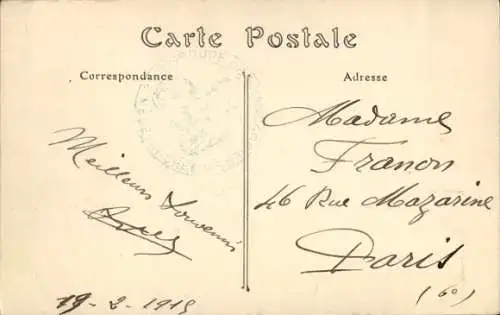 Carte Postale
Correspondance
Adresse
Meilleurs Souvenirs
19-2-1915
Madame
Franon
46 Rue Mazarine
Paris
(6e)